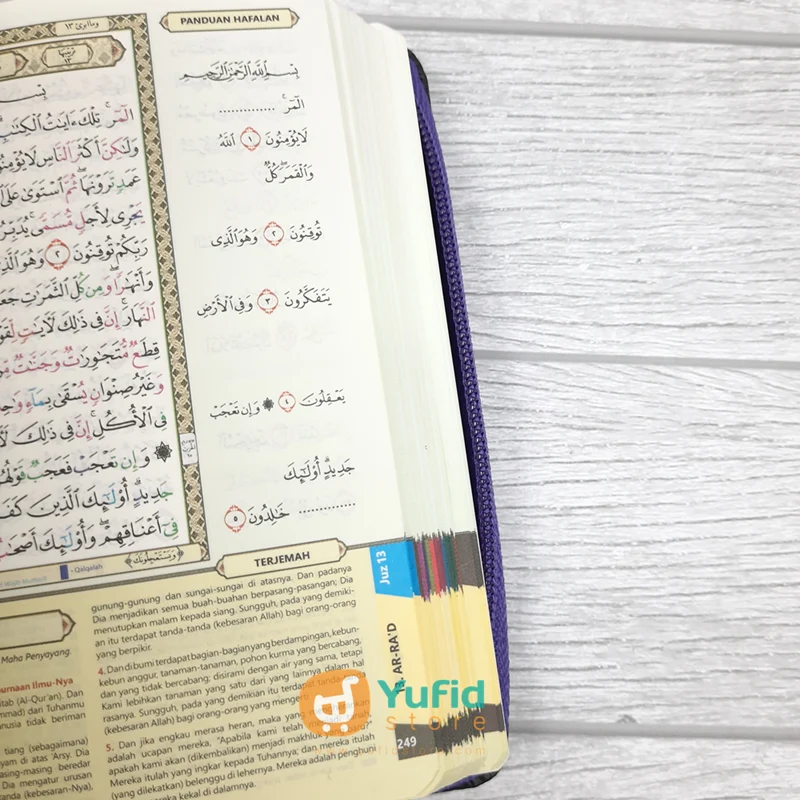 وما أبرئ ١٣
PANDUAN HAFALAN
ترتيبها ١٣
بِسْمِ اللَّهِ الرَّحْمَٰنِ الرَّحِيمِ
الٓمٓرۚ ..............
لَا يُؤْمِنُونَ ١ اللَّهُ
وَالْقَمَرَۖ كُلٌّ
تُوقِنُونَ ٢ وَهُوَ الَّذِي
يَتَفَكَّرُونَ ٣ وَفِي الْأَرْضِ
يَعْقِلُونَ ٤ ۞ وَإِن تَعْجَبْ
جَدِيدٍۗ أُولَٰئِكَ
.............. خَالِدُونَ ٥
بِسْـ
الٓمٓرۚ تِلْكَ ءَايَٰتُ الْكِتَٰبِۗ
وَلَٰكِنَّ أَكْثَرَ النَّاسِ لَا يُؤْمِنُو
عَمَدٍ تَرَوْنَهَاۖ ثُمَّ اسْتَوَىٰ عَلَى
يَجْرِي لِأَجَلٍ مُّسَمًّىۚ يُدَبِّرُ
رَبِّكُمْ تُوقِنُونَ ٢ وَهُوَ الَّذِ
وَأَنْهَٰرًاۖ وَمِن كُلِّ الثَّمَرَٰتِ جَعَ
النَّهَارَۚ إِنَّ فِي ذَٰلِكَ لَءَايَٰتٍ لِّقَوْ
قِطَعٌ مُّتَجَٰوِرَٰتٌ وَجَنَّٰتٌ مِّنْ
وَغَيْرُ صِنْوَانٍ يُسْقَىٰ بِمَاءٍ وَٰحِ
فِي الْأُكُلِۚ إِنَّ فِي ذَٰلِكَ لَ
۞ وَإِن تَعْجَبْ فَعَجَبٌ قَوْلُهُ
جَدِيدٍۗ أُولَٰئِكَ الَّذِينَ كَفَ
فِي أَعْنَاقِهِمْۖ وَأُولَٰئِكَ أَصْحَٰ
وَيَسْتَعْجِلُونَكَ
- Qalqalah
TERJEMAH
Juz 13
gunung-gunung dan sungai-sungai di atasnya. Dan padanya
Dia menjadikan semua buah-buahan berpasang-pasangan; Dia
menutupkan malam kepada siang. Sungguh, pada yang demiki-
an itu terdapat tanda-tanda (kebesaran Allah) bagi orang-orang
yang berpikir.
4. Dan di bumi terdapat bagian-bagian yang berdampingan, kebun-
kebun anggur, tanaman-tanaman, pohon kurma yang bercabang,
dan yang tidak bercabang; disirami dengan air yang sama, tetapi
Kami lebihkan tanaman yang satu dari yang lainnya dalam hal
rasanya. Sungguh, pada yang demikian itu terdapat tanda-
(kebesaran Allah) bagi orang-orang yang menge
5. Dan jika engkau merasa heran, maka yang
adalah ucapan mereka, "Apabila kami telah menjadi tanah,
apakah kami akan (dikembalikan) menjadi makhluk yang baru?"
Mereka itulah yang ingkar kepada Tuhannya; dan mereka itulah
(yang dilekatkan) belenggu di lehernya. Mereka adalah penghuni
mereka kekal di dalamnya.
Maha Penyayang.
umaan Ilmu-Nya
itab (Al-Qur'an). Dan
mmad) dari Tuhanmu
nusia tidak beriman
tiang (sebagaimana)
yam di atas 'Arsy. Dia
ing-masing beredar
Dia mengatur urusan
da (kebesaran-Nya),
13. AR-RA'D
249
Yufid
store